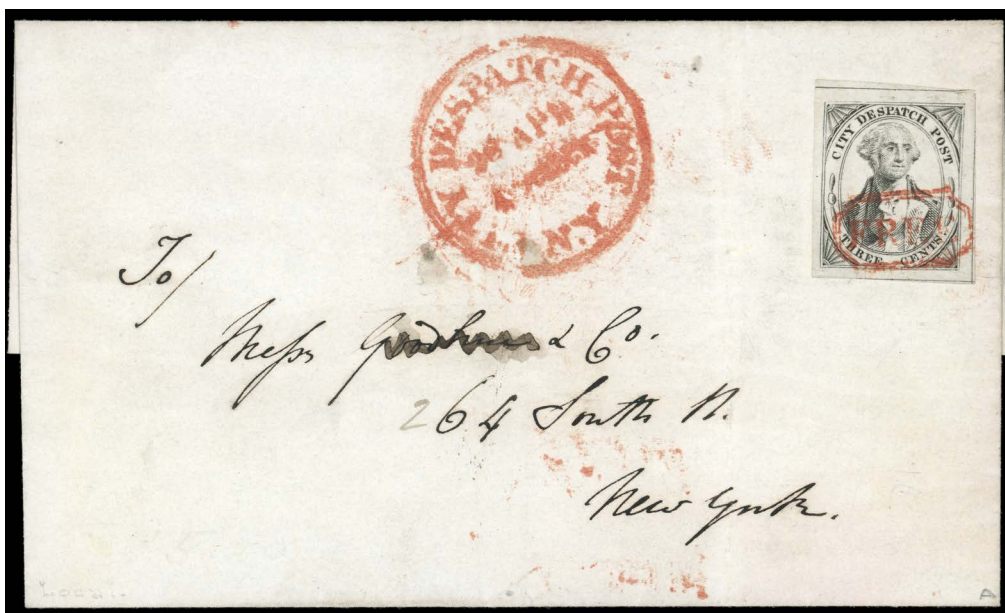 CITY DESPATCH POST N.Y.
APR
CITY DESPATCH POST
FREE
THREE CENTS.
To/
Messrs & Co.
264 South St.
New York.
A